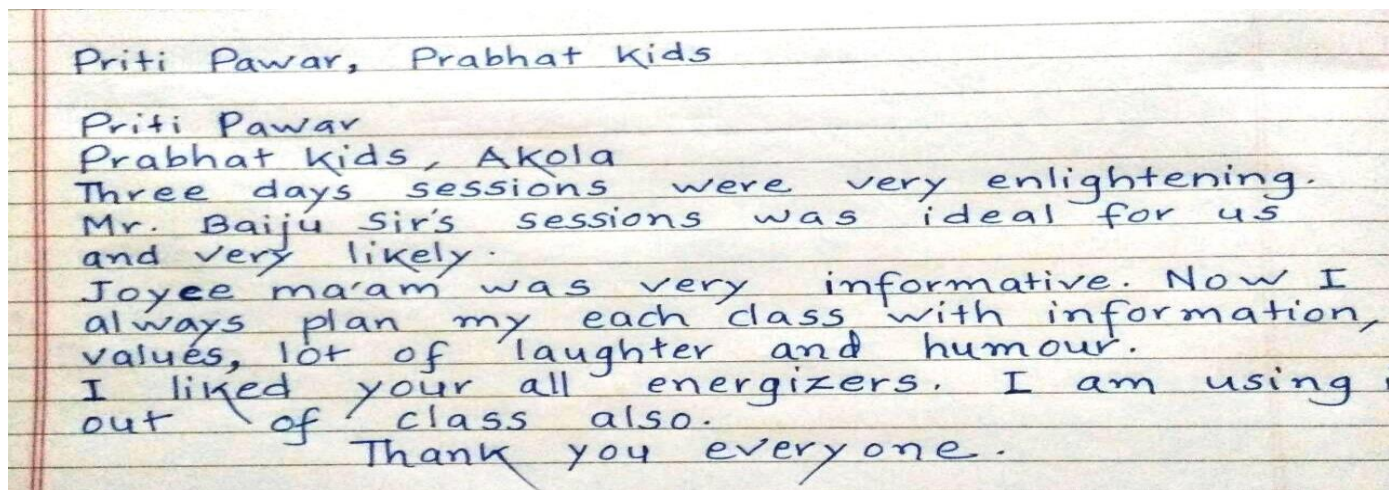 Priti Pawar, Prabhat Kids
Priti Pawar
Prabhat Kids, Akola
Three days sessions were very enlightening.
Mr. Baiju Sir's sessions was ideal for us
and very likely.
Joyce ma'am was very informative. Now I
always plan my each class with information,
values, lot of laughter and humour.
I liked your all energizers. I am using
out of class also.
Thank you everyone.